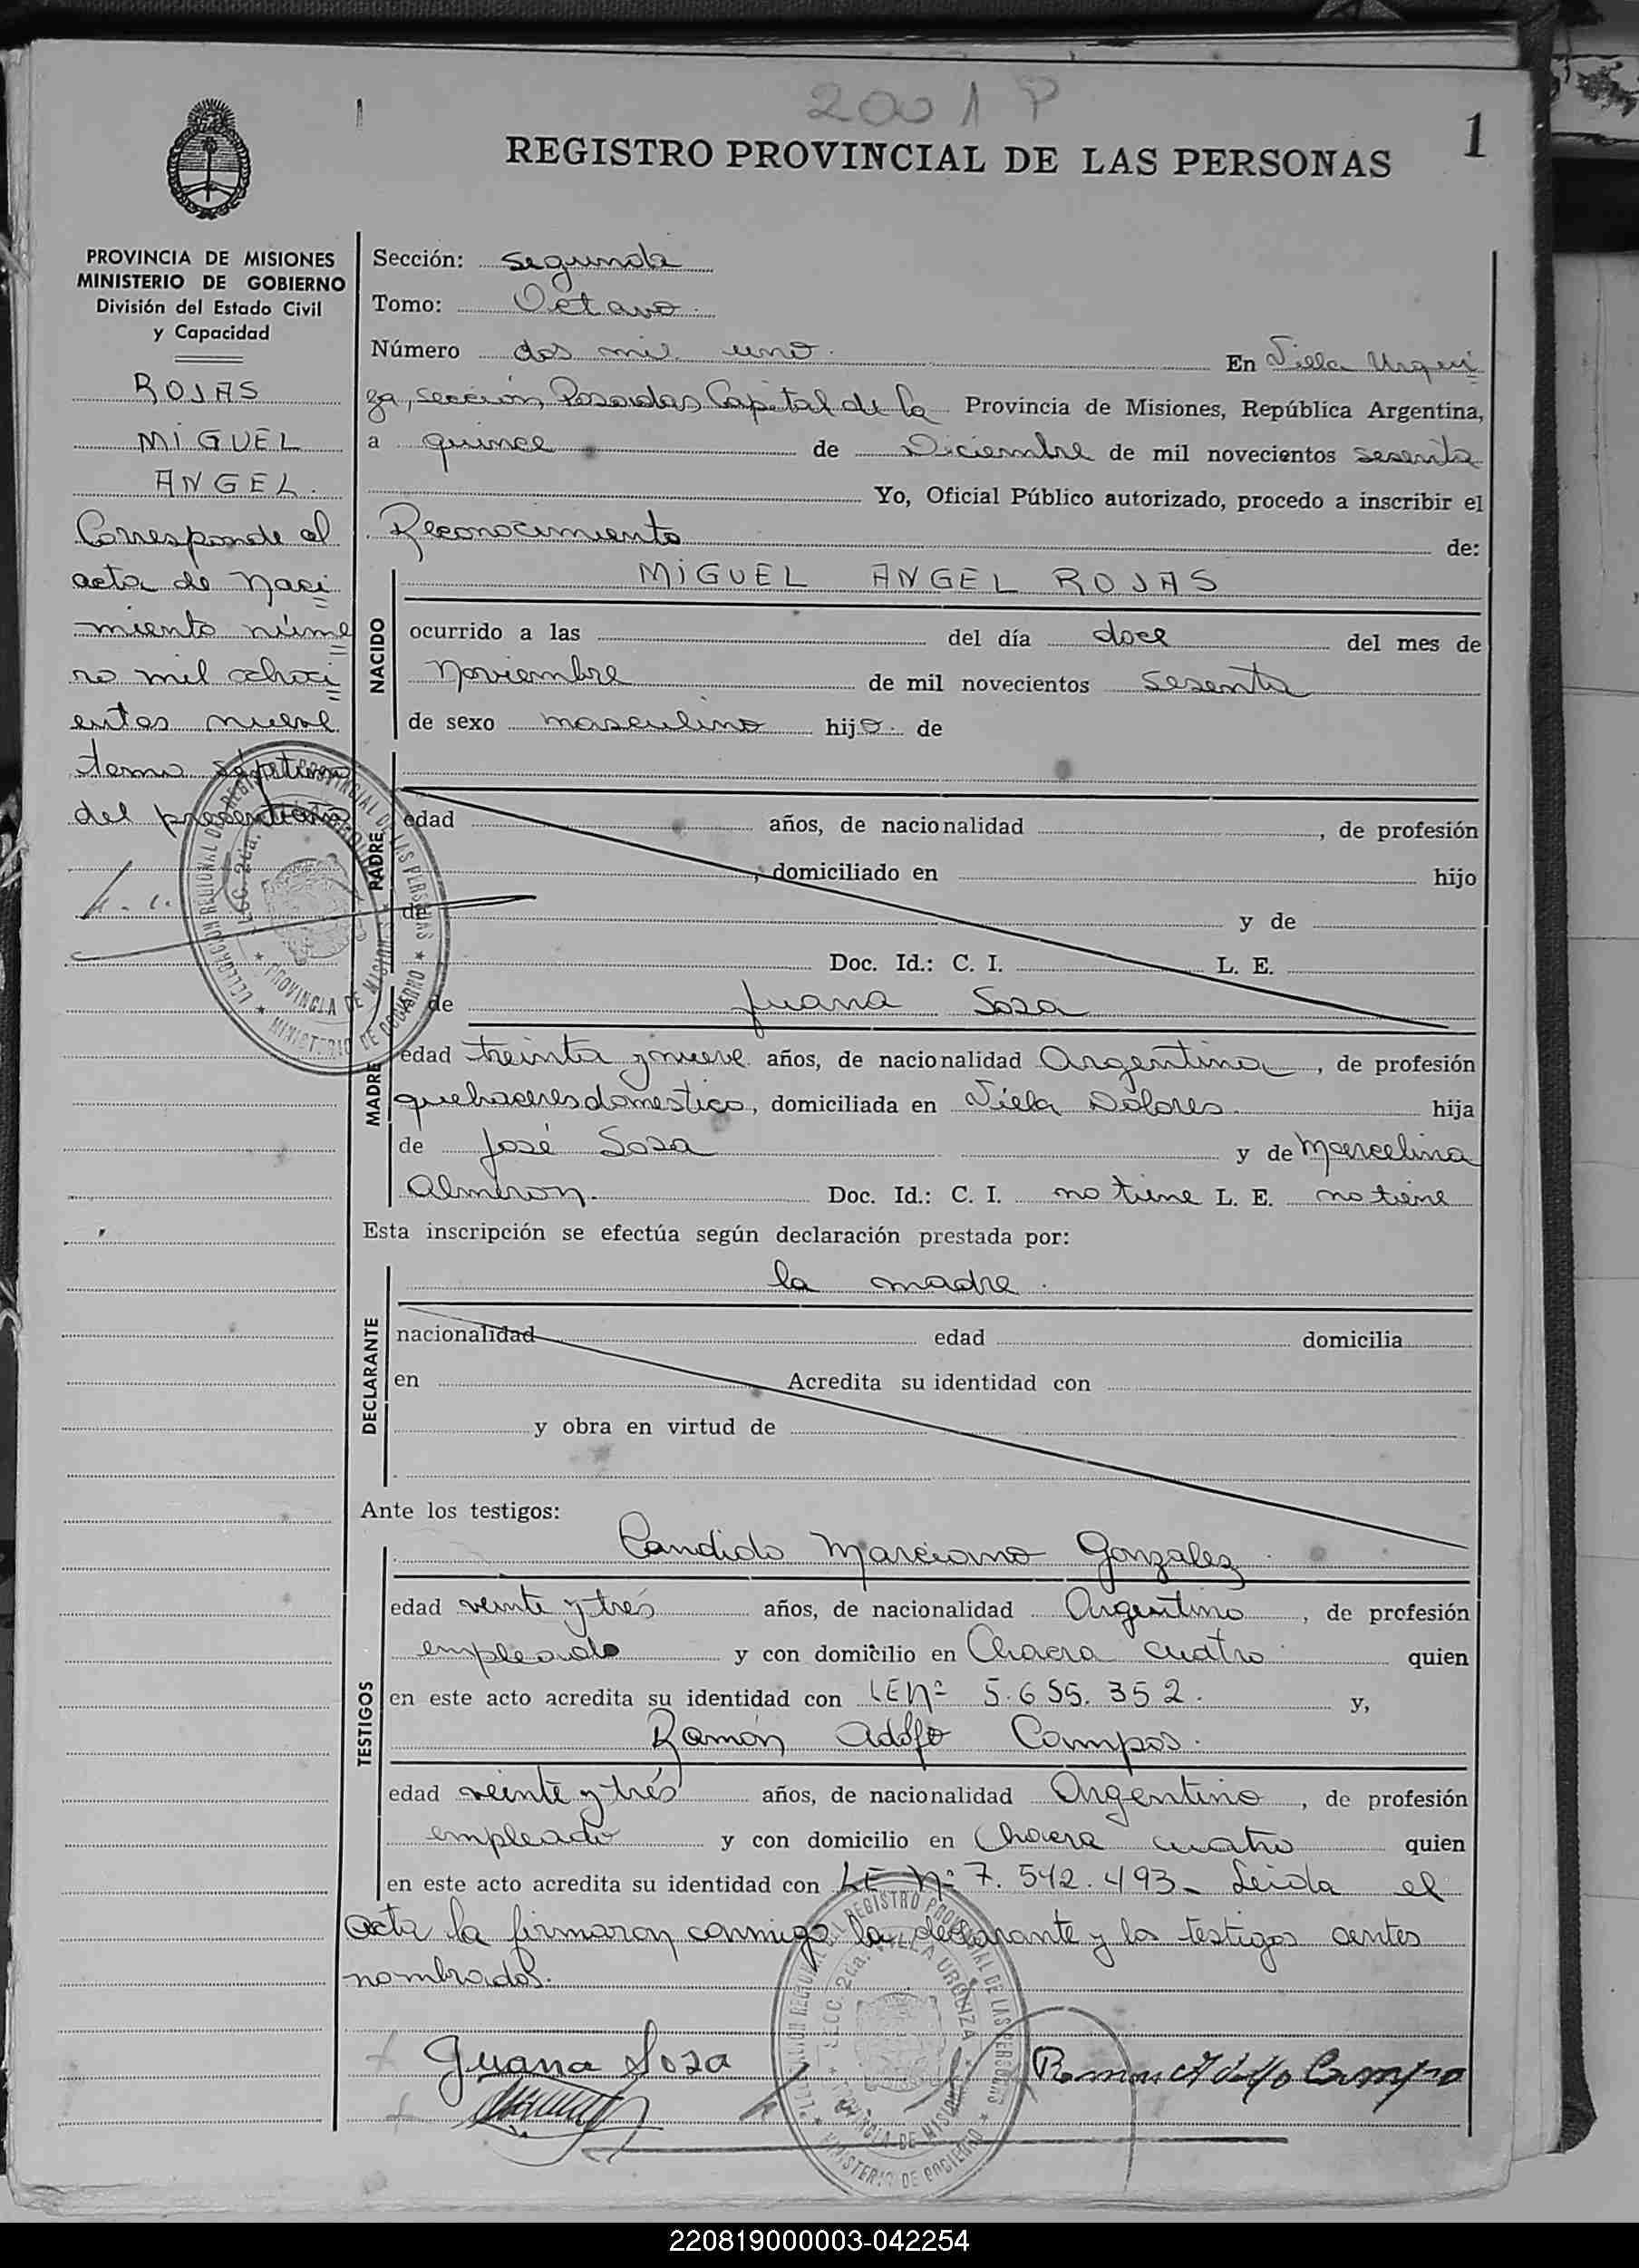 2001 P
1
REGISTRO PROVINCIAL DE LAS PERSONAS
PROVINCIA DE MISIONES
MINISTERIO DE GOBIERNO
División del Estado Civil
y Capacidad
ROJAS
MIGUEL
ANGEL.
Corresponde al
acta de Naci
miento núme
ro mil ochoci
entos nueve
tomo séptimo
del presente año
Sección: segunda
Tomo: Octavo.
Número dos mil uno. En Villa Urqui
za, sección, Posadas Capital de la Provincia de Misiones, República Argentina,
a quince de Diciembre de mil novecientos sesenta
Yo, Oficial Público autorizado, procedo a inscribir el
Reconocimiento de:
NACIDO
MIGUEL ANGEL ROJAS
ocurrido a las del día doce del mes de
Noviembre de mil novecientos sesenta
de sexo masculino hijo de
PADRE
edad años, de nacionalidad , de profesión
, domiciliado en hijo
de y de
Doc. Id.: C. I. L. E.
MADRE
y de Juana Sosa
edad treinta y nueve años, de nacionalidad Argentina, de profesión
quehaceres domestico, domiciliada en Villa Dolores hija
de José Sosa y de Marcelina
Almiron. Doc. Id.: C. I. no tiene L. E. no tiene
Esta inscripción se efectúa según declaración prestada por:
DECLARANTE
la madre.
nacionalidad edad domicilia
en Acredita su identidad con
y obra en virtud de
Ante los testigos:
TESTIGOS
Candido Marciano Gonzalez
edad veinte y trés años, de nacionalidad Argentino, de profesión
empleado y con domicilio en Chacra cuatro quien
en este acto acredita su identidad con LE Nº 5.655.352. y,
Ramón Adolfo Campos.
edad veinte y trés años, de nacionalidad Argentino, de profesión
empleado y con domicilio en Chacra cuatro quien
en este acto acredita su identidad con LE Nº 7.542.493- Leida el
acta la firmaron conmigo la declarante y los testigos antes
nombrados.
Juana Sosa
Ramon Adolfo Campo
DELEGACION REGIONAL DEL REGISTRO PROVINCIAL DE LAS PERSONAS
SECC. 2da. VILLA URQUIZA
PROVINCIA DE MISIONES
MINISTERIO DE GOBIERNO
220819000003-042254